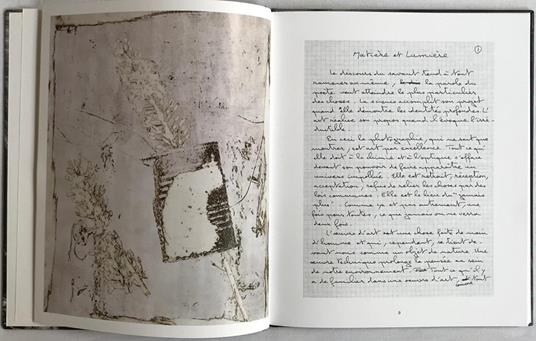 ①
Matière et Lumière
Le discours du savant tend à tout
ramener au même, la parole du
poète veut atteindre le plus particulier
des choses. La science accomplit son projet
quand elle démontre les identités profondes. L'
art réalise son propos quand il évoque l'irré-
ductible.
En ceci la photographie, qui ne sait que
montrer, est art par excellence. Tout ce qu'
elle doit à la chimie et à l'optique s'efface
devant son pouvoir de faire apparaître un
univers singulier. Elle est retrait, réception,
acceptation, refus de relier les choses par des
lois communes. Elle est le lieu du "jamais
plus". Comme ça et pas autrement, une
fois pour toutes, ce que jamais on ne verra
deux fois.
L'œuvre d'art est une chose faite de main
d'homme et qui, cependant, se tient de-
vant nous comme un objet de nature. Une
œuvre technique prolonge la pensée au sein
de notre environnement. Tout ce qu'il y
a de familier dans une œuvre d'art, tout